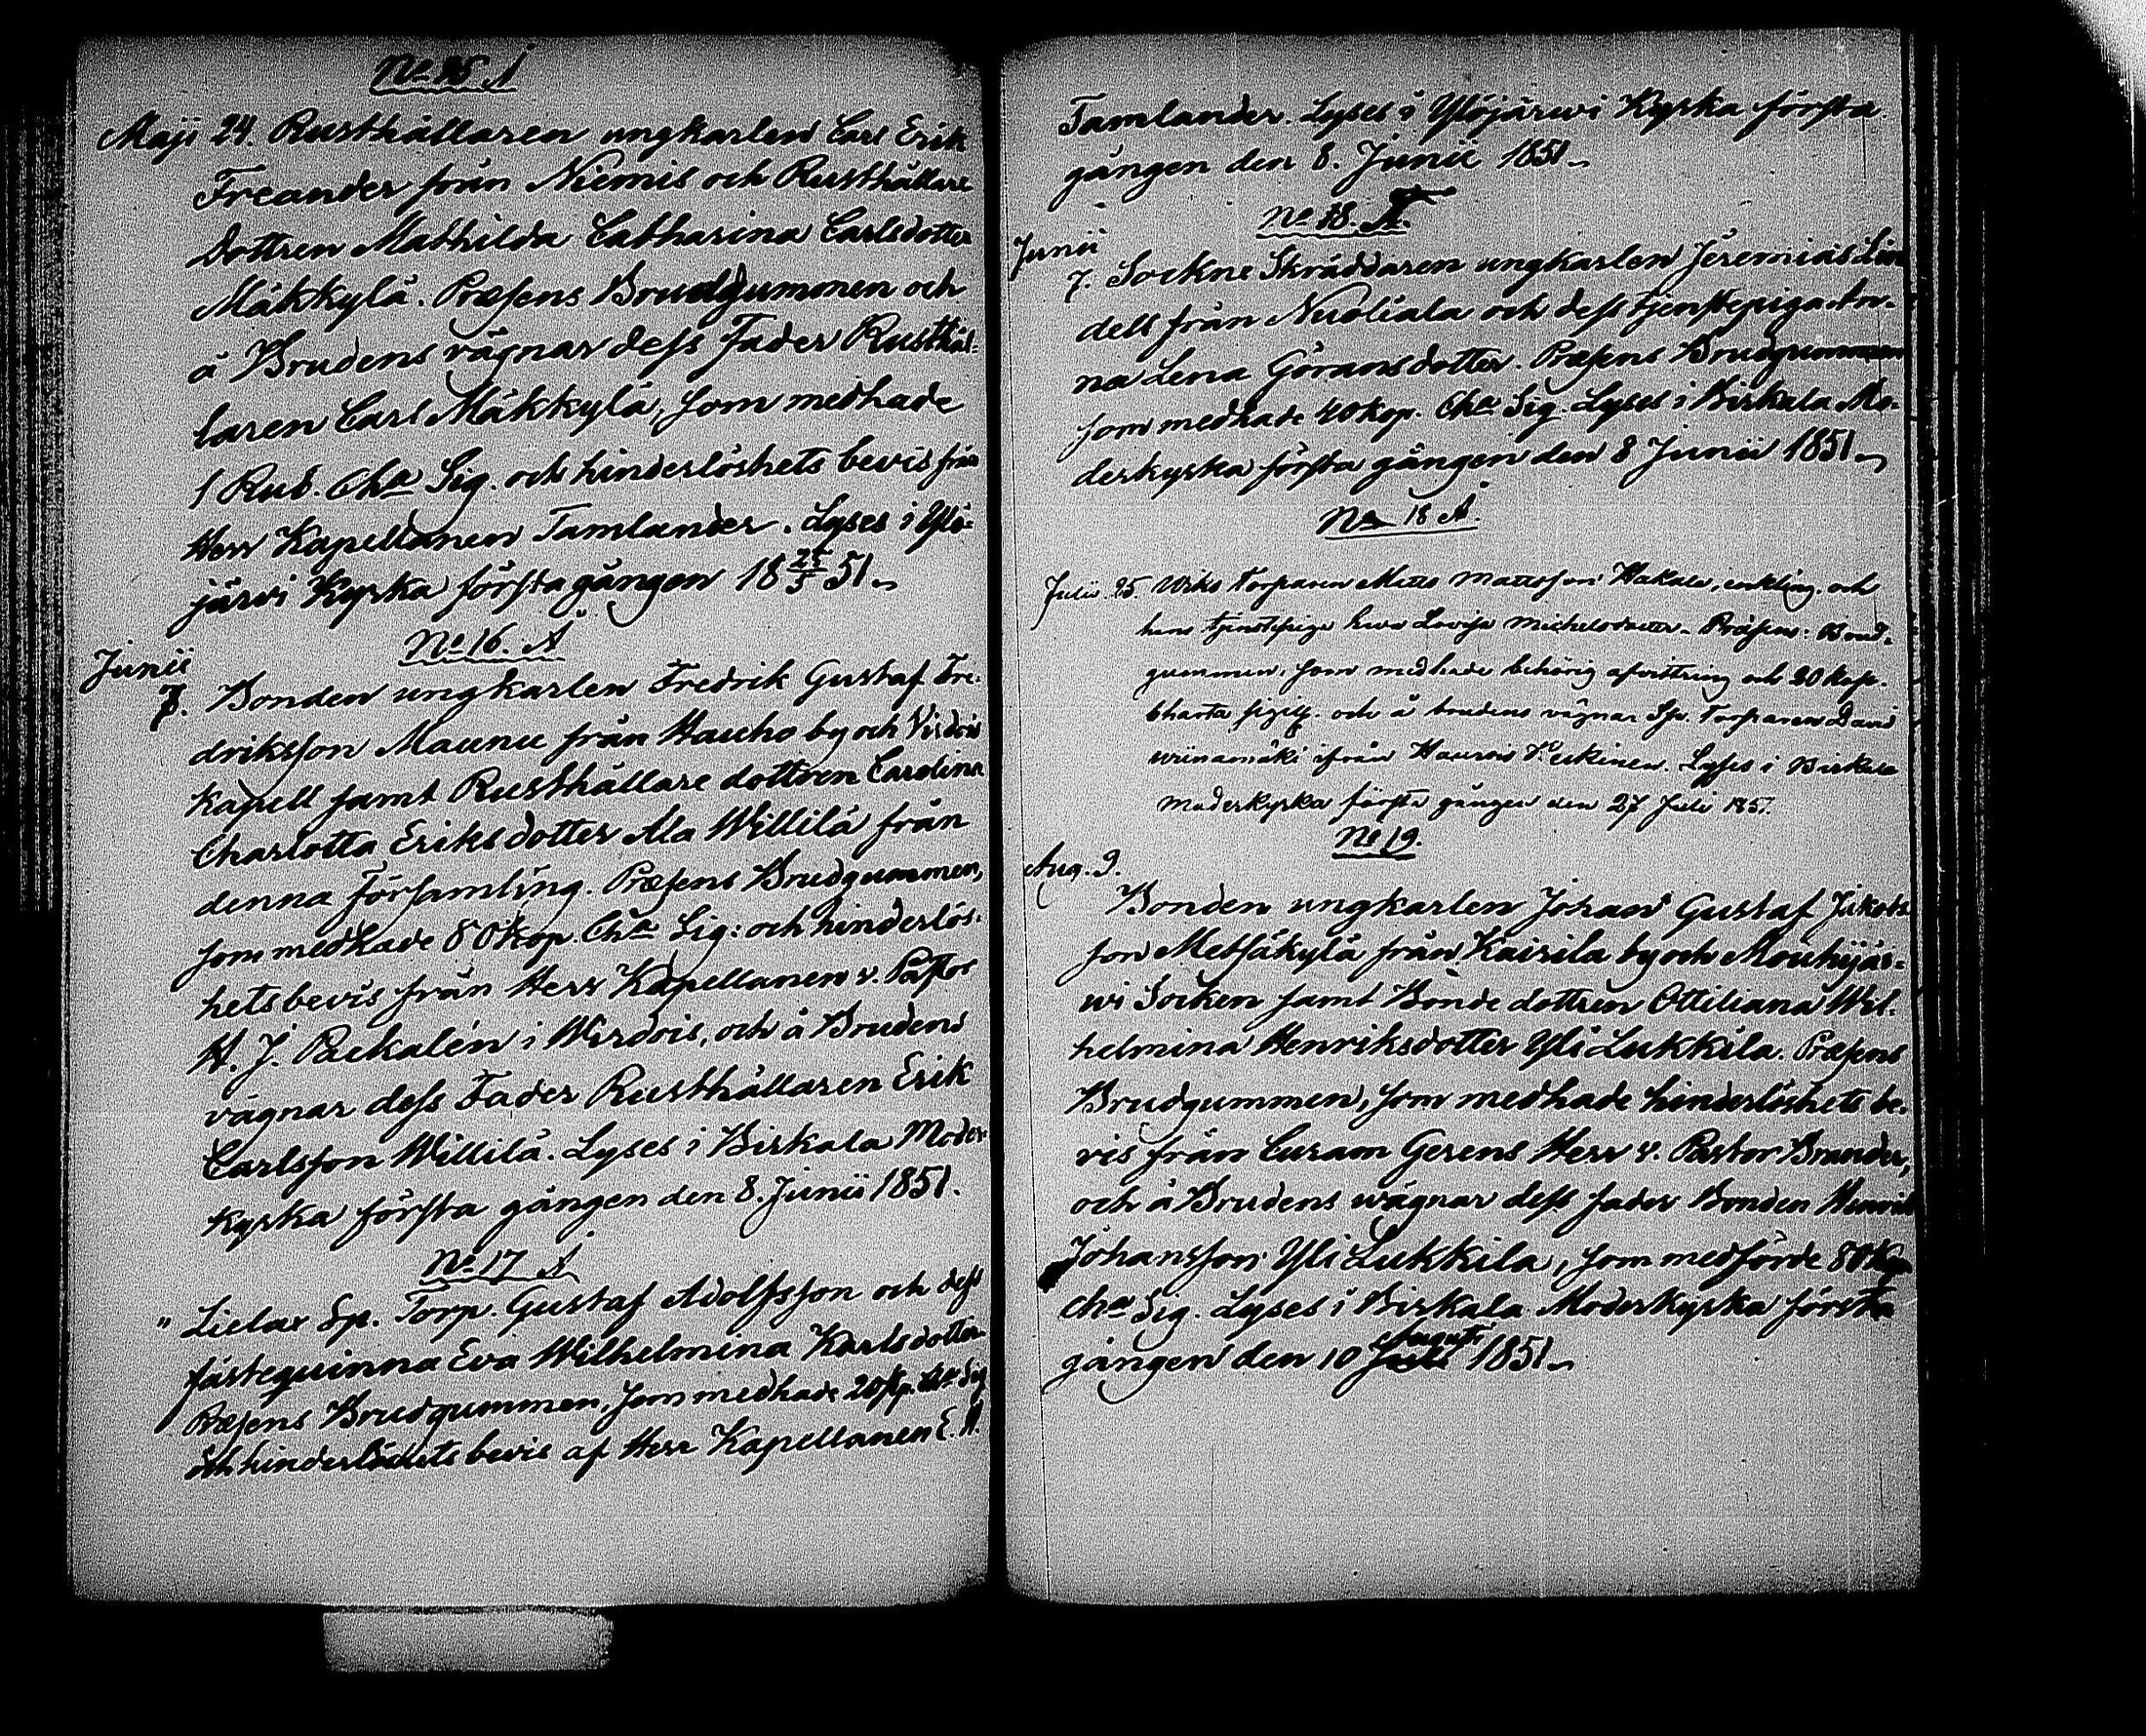 No 15 A
Maji 24. Rusthållaren ungkarlen Carl Erik
Freander från Niemis och Rusthållare
dottren Mathilda Catharina Carlsdotter
Mäkkylä. Præsens Brudgummen och
å Brudens vägnar dess Fader Rusthål-
laren Carl Mäkkylä, som medhade
1 Rub. Cha Sig. och hinderlöshets bevis från
Herr Kapellanen Tamlander. Lyses i Ylö-
järvi Kyrka första gången 18 25/5 51.
No 16. A
Junii
7. Bonden ungkarlen Fredrik Gustaf Fre-
driksson Maunu från Hauho by och Virdois
Kapell samt Rusthållare dottren Carolina
Charlotta Eriksdotter Ala Willilä från
denna Församling. Præsens Brudgummen,
som medhade 80 kop. Cha Sig: och hinderlös-
hetsbevis från Herr Kapellanen v. Pastor
H. J. Backalén i Wirdois, och å Brudens
vägnar dess Fader Rusthållaren Erik
Carlsson Willilä. Lyses i Birkala Moder-
kyrka första gången den 8. Junii 1851.
No 17 A
" Lielax Sp. Torp. Gustaf Adolfsson och dess
fästequinna Eva Wilhelmina Karlsdotter
Præsens Brudgummen, som medhade 20 kp. Cha Sig
och hinderlöshets bevis af Herr Kapellanen E. H.
Tamlander. Lyses i Ylöjärwi Kyrka första
gången den 8. Junii 1851.
No 18. A.
Junii
7. Sockne Skräddaren ungkarlen Jeremias Lin
dell från Nuoliala och dess tjenstepiga An-
na Lena Göransdotter. Præsens Brudgummen
som medhade 40 kop. Cha Sig. Lyses i Birkala Mo-
derkyrka första gången den 8 Junii 1851.
No 18 A.
Julii 25. Torparen Matts Mattsson Hakala, enkling och
hans tjenstepiga Eva Lovisa Michelsdotter. Præsens: Brud-
gummen, som medhade behörig afvittring och 20 kop.
charta sigill. och å brudens vägnar Sp. Torparen
ifrån Lyses i Birkala
moderkyrka första gången den 27 Juli 1851.
No 19.
Aug. 9.
Bonden ungkarlen Johan Gustaf Jakobs
son Metsäkylä från Kairila by och Mouhijär-
wi Socken samt Bonde dottren Ottiliana Wil-
helmina Henriksdotter Yli Lukkila. Præsens
Brudgummen, som medhade hinderlöshets be-
vis från Curam Gerens Herr v. Pastor Brander,
och å Brudens wägnar dess fader Bonden Henrik
Johansson Yli Lukkila, som medförde 80 Kp
cha Sig. Lyses i Birkala Moderkyrka första
gången den 10 Augusti 1851.